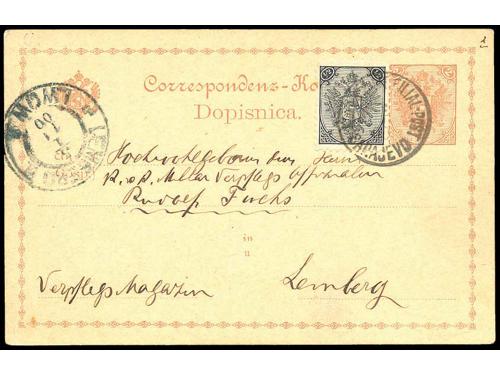 Correspondenz-Ko
Dopisnica.
Hochwohlgeboren den Herrn
k. o. k. Militär Verpflegs Offizialen
Rudolf Fuchs
in
u
Verpflegs Magazin
Lemberg
SARAJEVO
LWÓW